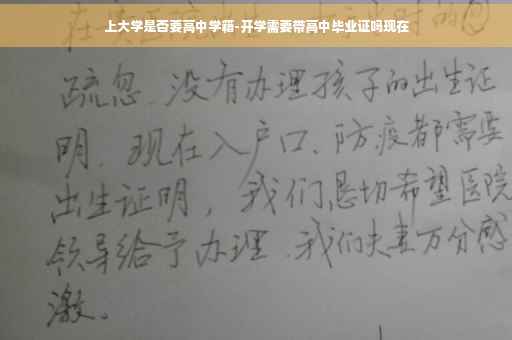 上大学是否要高中学籍-开学需要带高中毕业证吗现在
疏忽、没有办理孩子的出生证
明、现在入户口、防疫都需要
出生证明，我们恳切希望医院
领导给予办理、我们夫妻万分感
激。